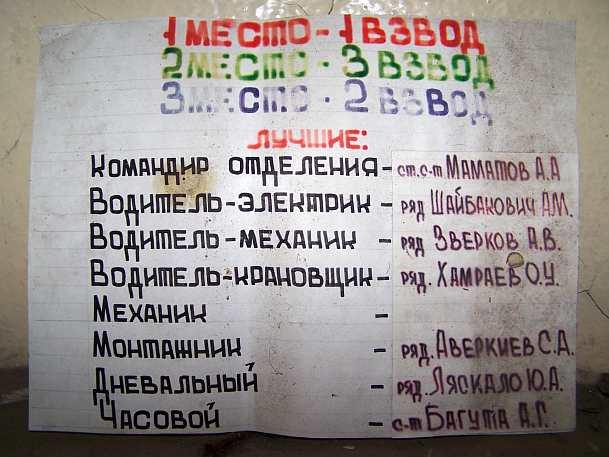 1 МЕСТО - 1 ВЗВОД
2 МЕСТО - 3 ВЗВОД
3 МЕСТО - 2 ВЗВОД
ЛУЧШИЕ:
КОМАНДИР ОТДЕЛЕНИЯ - ст. с-т МАМАТОВ А.А
ВОДИТЕЛЬ-ЭЛЕКТРИК - ряд ШАЙБАКОВИЧ А.М.
ВОДИТЕЛЬ-МЕХАНИК - ряд ЗВЕРКОВ А.В.
ВОДИТЕЛЬ-КРАНОВЩИК - ряд. ХАМРАЕВ О.У.
МЕХАНИК -
МОНТАЖНИК - ряд. АВЕРКИЕВ С.А.
ДНЕВАЛЬНЫЙ - ряд. ЛЯСКАЛО Ю.А.
ЧАСОВОЙ - с-т БАГУТА А.Г.